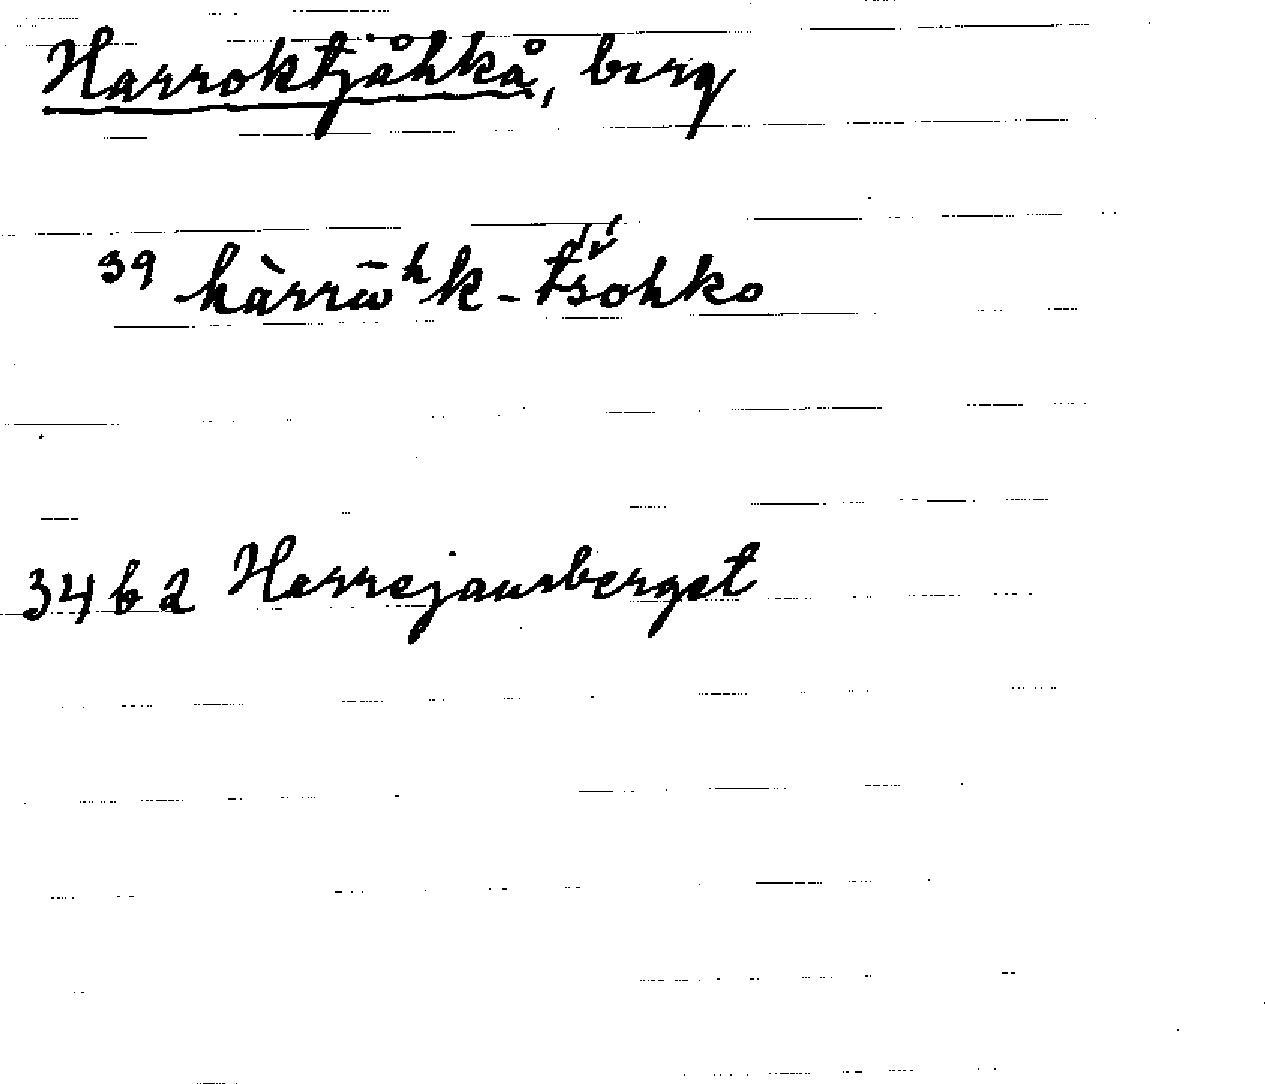 Harroktjåhkå, berg
39 hàrrω̄ʰk-t́š́ohko
34 b 2 Herrejausberget